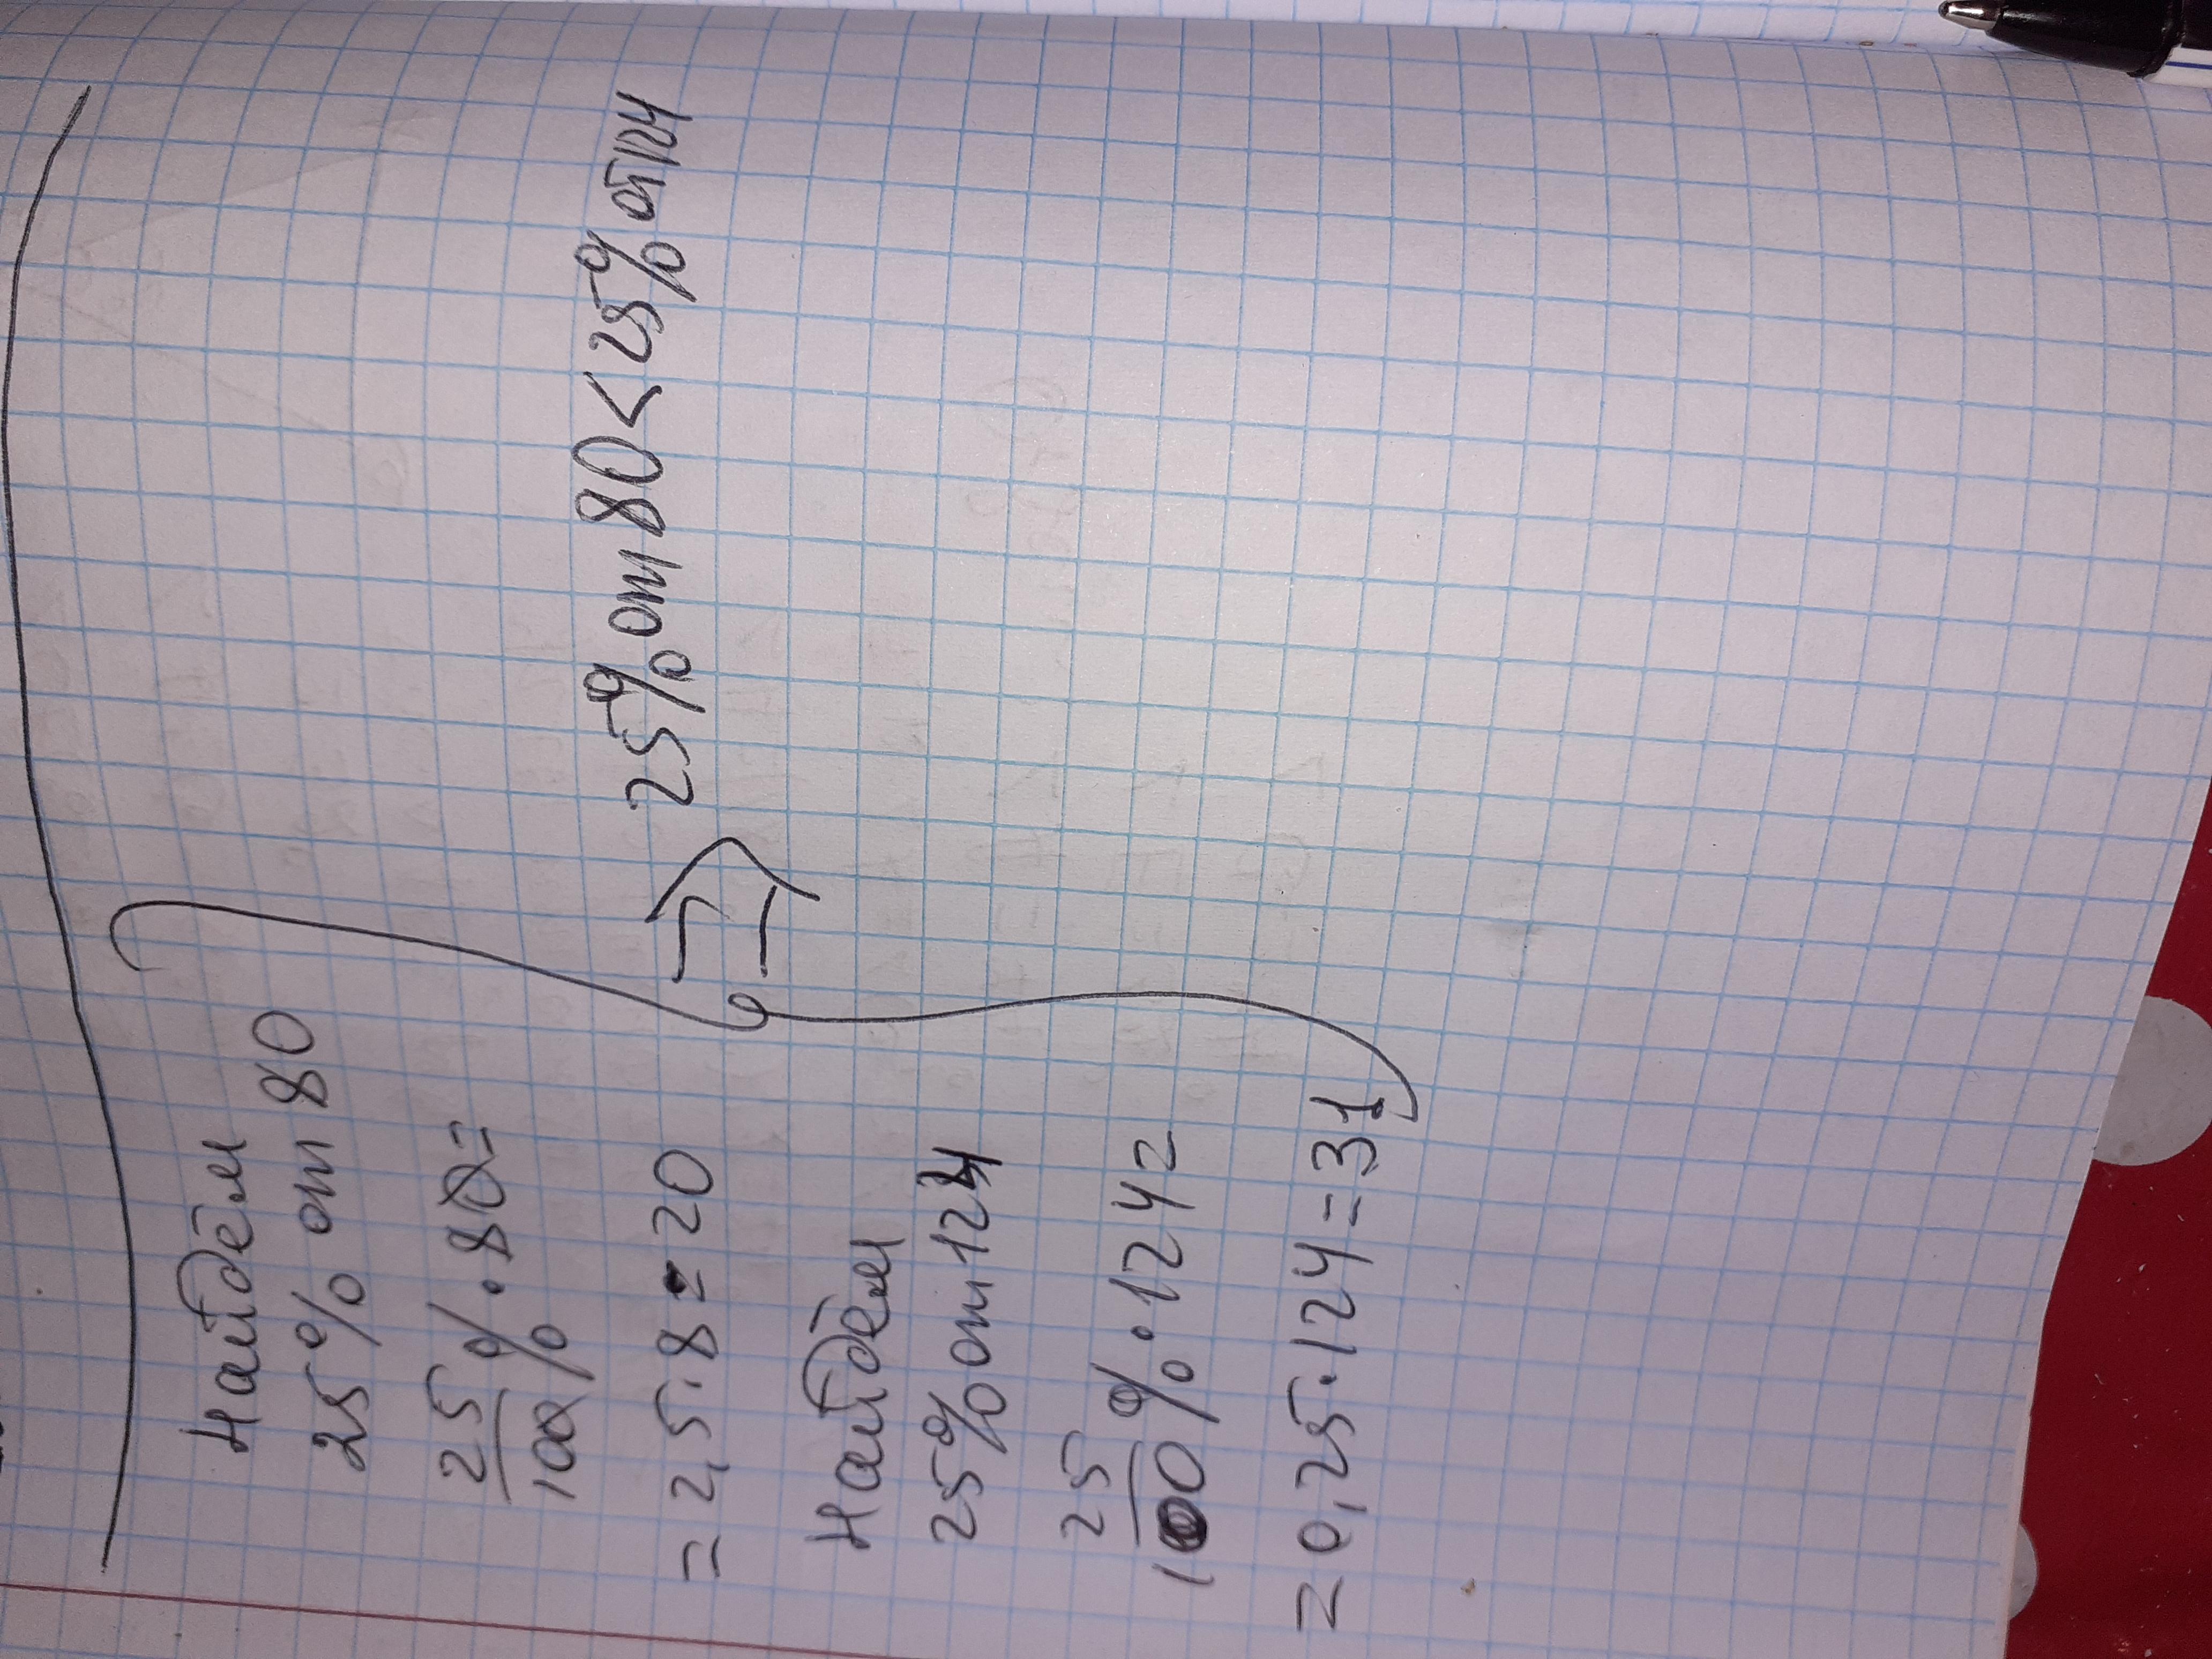 Найдём
25% от 80
25%/100% · 80 =
= 2,5 · 8 = 20
Найдём
25% от 124
25/100 % · 124 =
= 0,25 · 124 = 31
⇒ 25% от 80 < 25% от 124